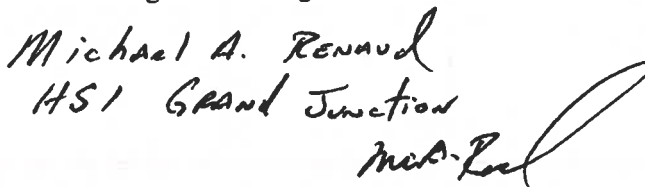 Michael A. RENAUD
HSI GRAND Junction